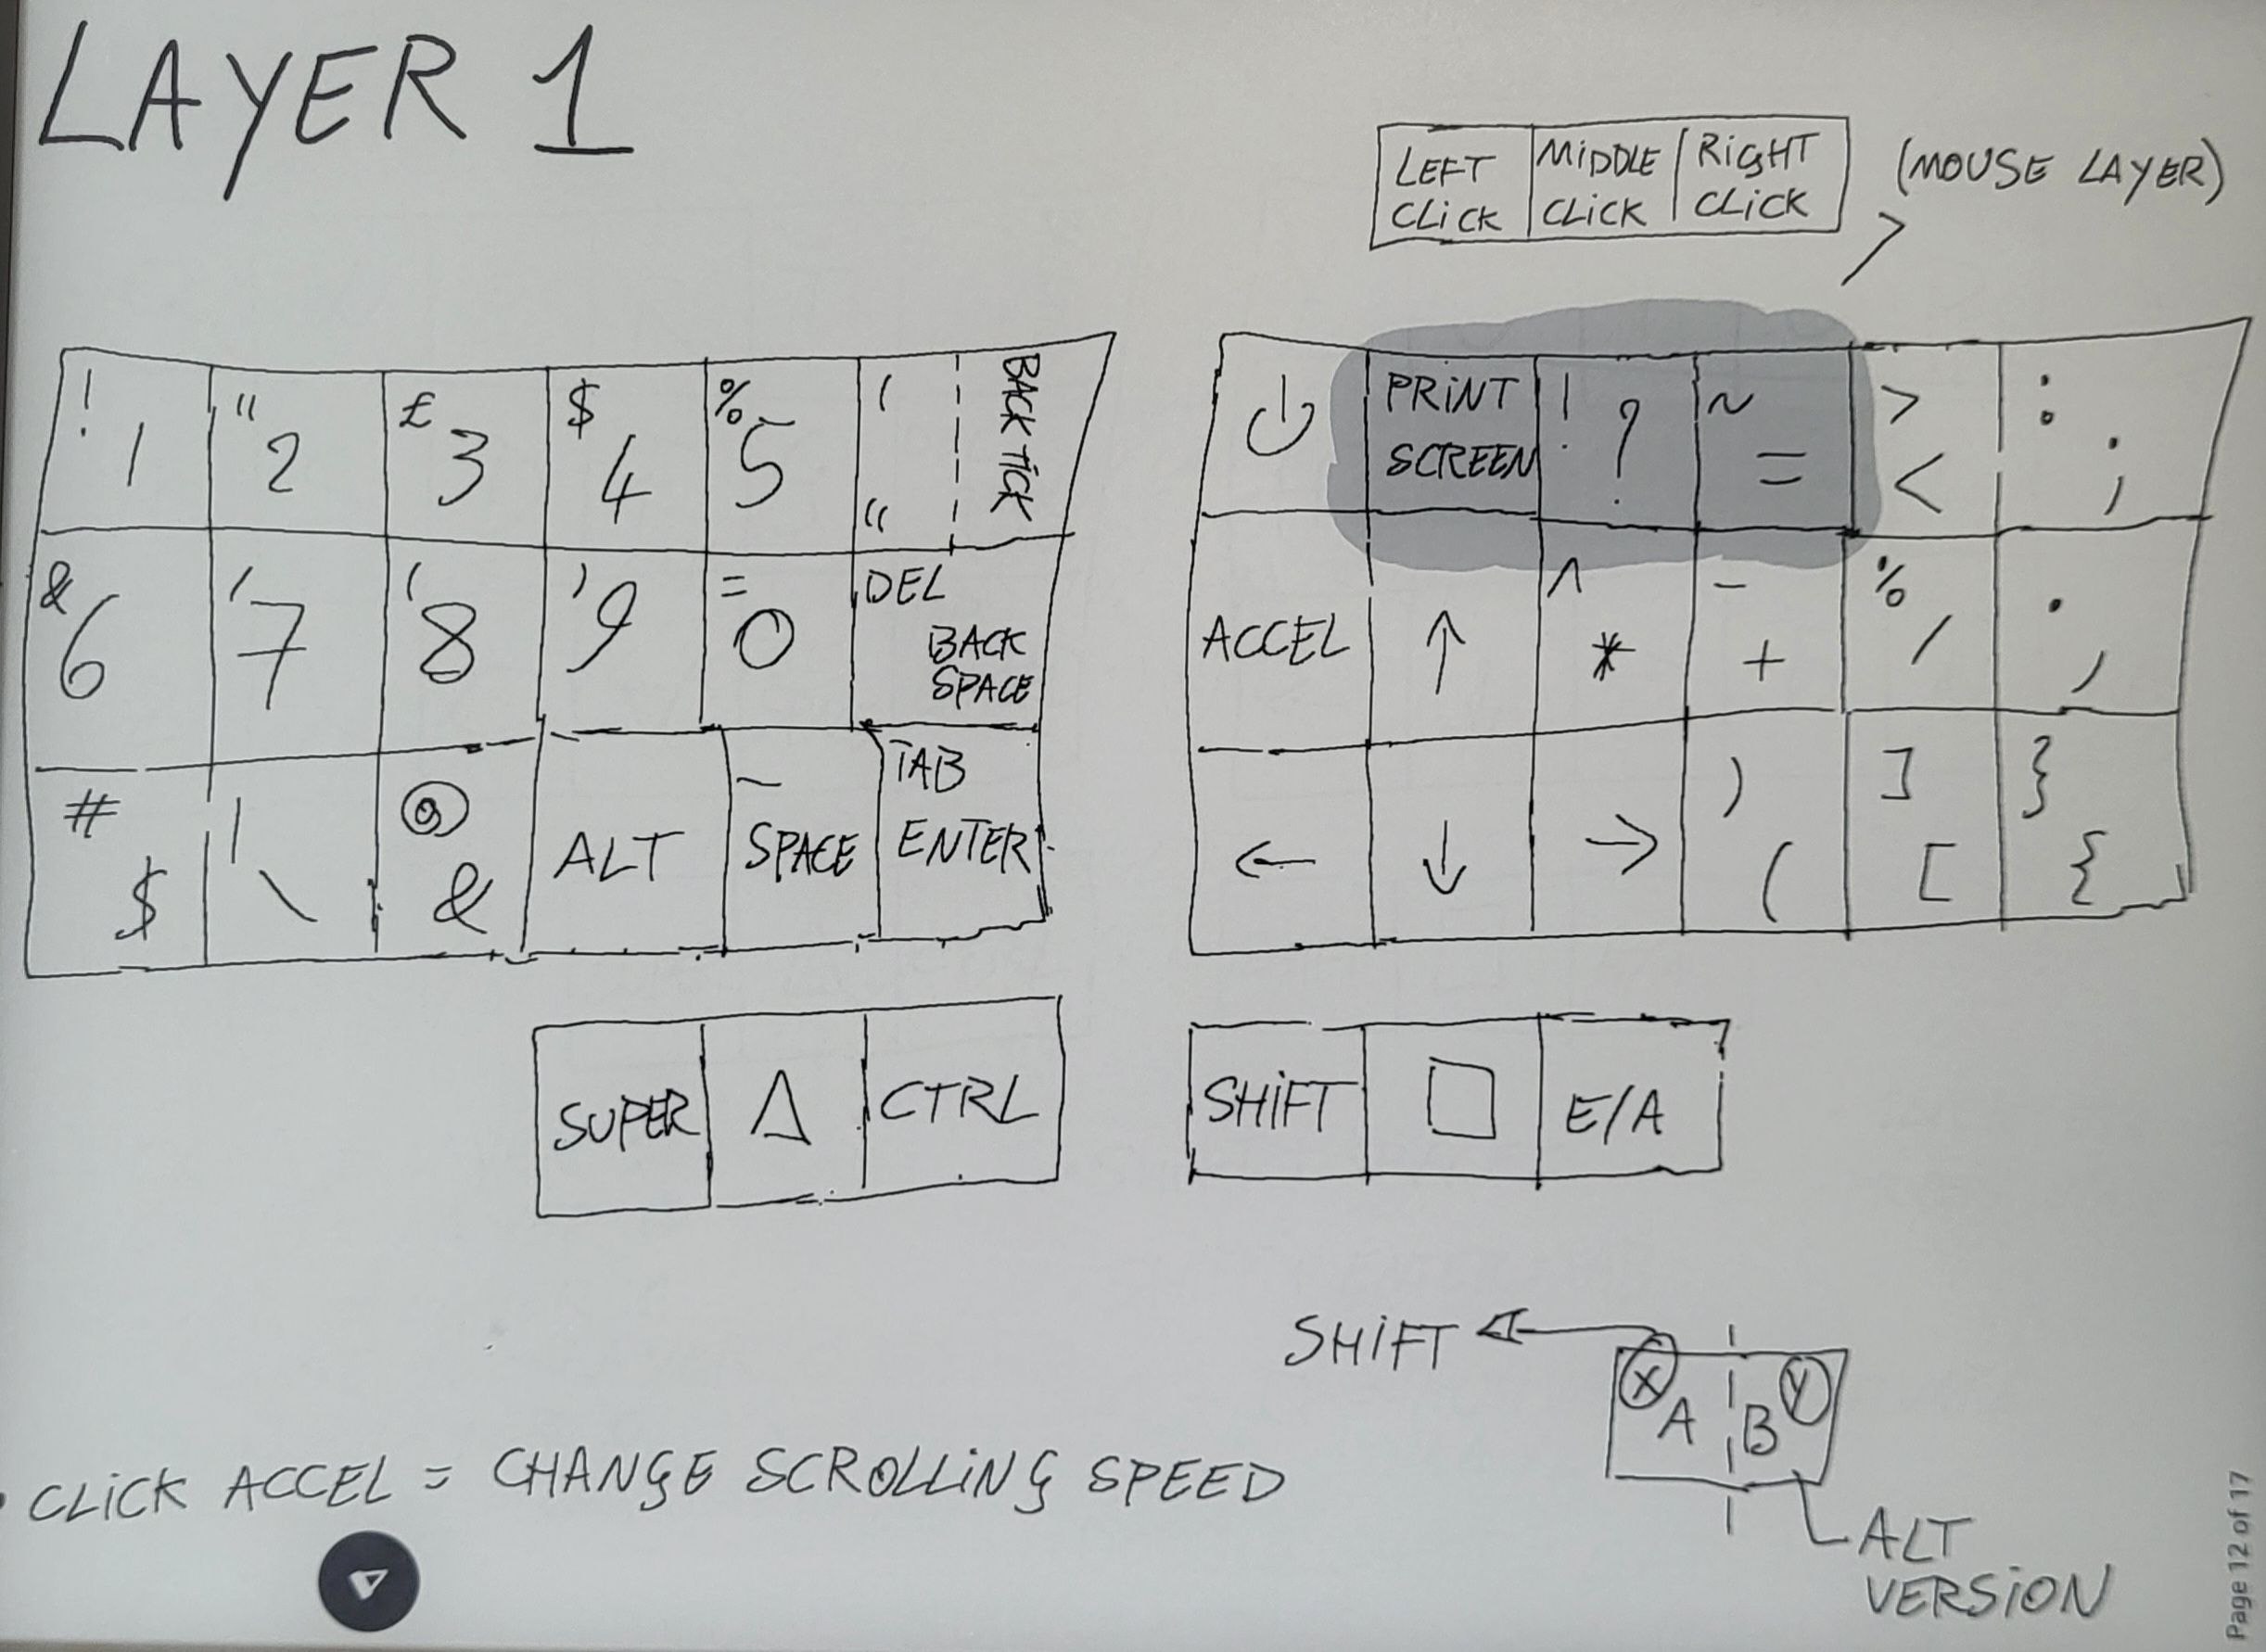 LAYER 1
LEFT CLICK MIDDLE CLICK RIGHT CLICK (MOUSE LAYER)
! 1 " 2 £ 3 $ 4 % 5 ' " BACK TICK
& 6 / 7 ( 8 ) 9 = 0 DEL BACK SPACE
# $ | \ @ & ALT _ SPACE TAB ENTER
PRINT SCREEN ! ? ~ = > < : ;
ACCEL ↑ ^ * - + % / . ,
← ↓ → ) ( ] [ } {
SUPER △ CTRL
SHIFT □ E/A
SHIFT
X A B Y
ALT
VERSION
• CLICK ACCEL = CHANGE SCROLLING SPEED
Page 12 of 17